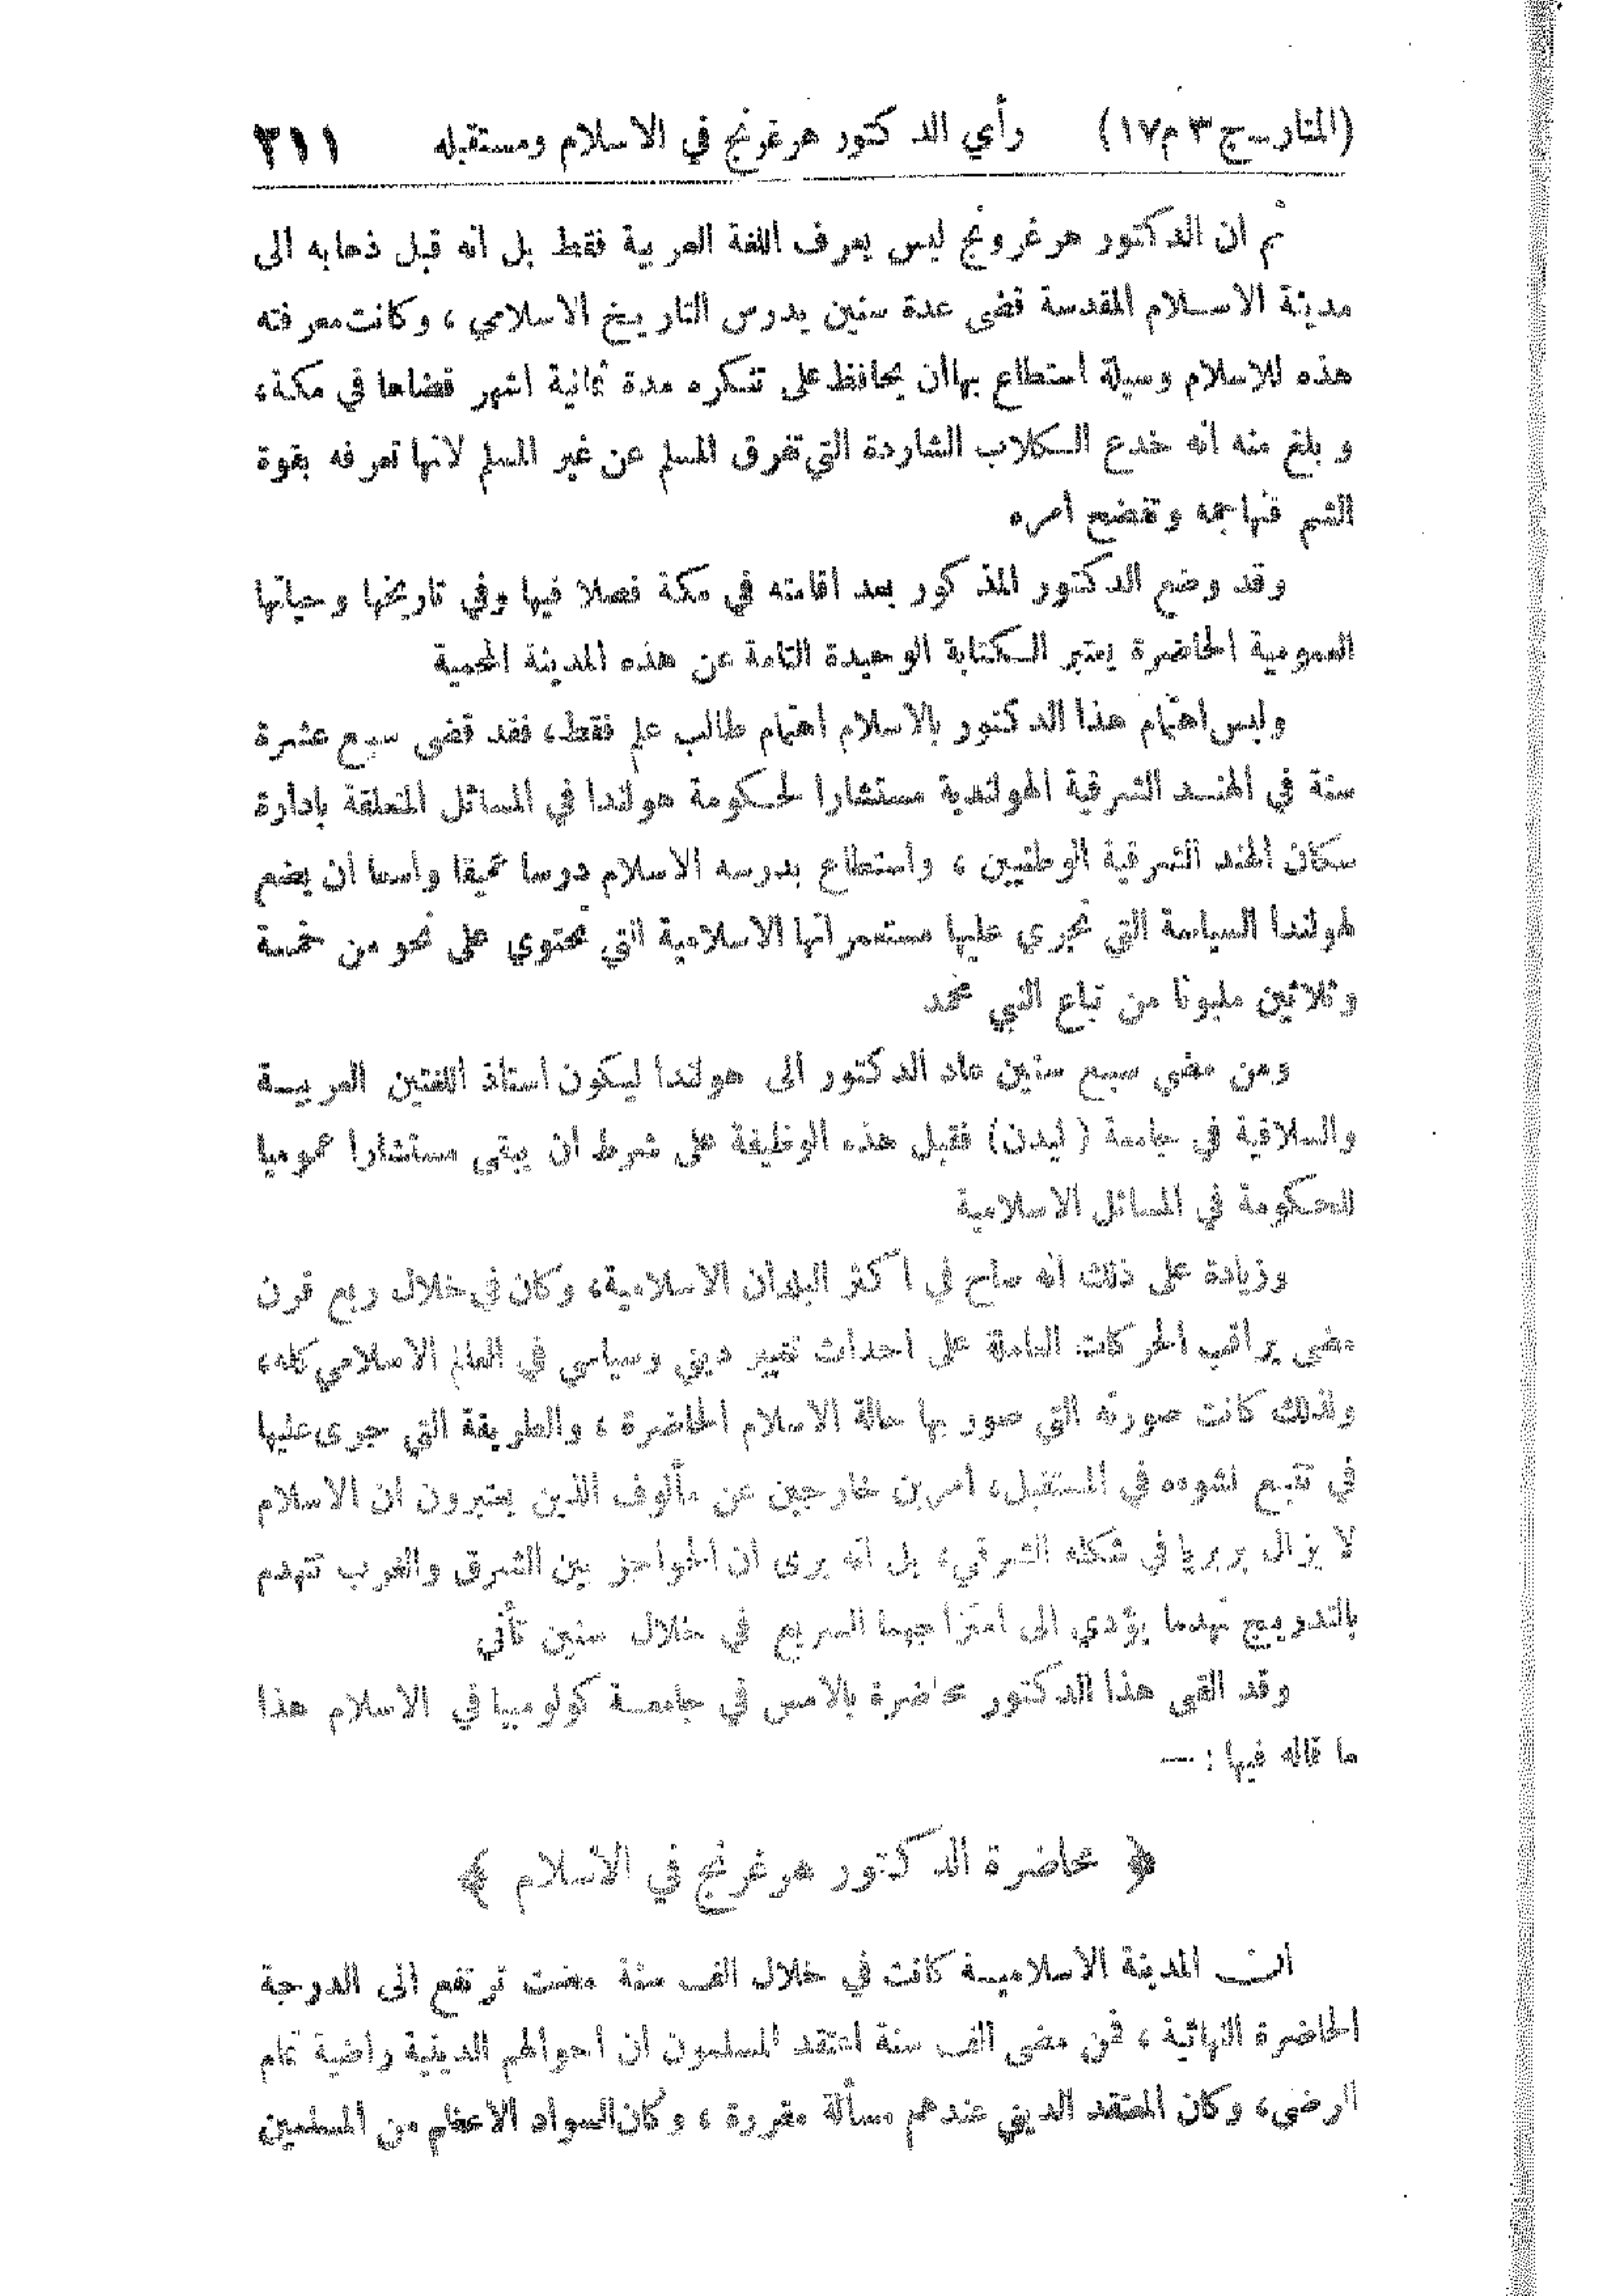 (المنار ـ ج ٣ م ١٧) رأي الدكتور هرغرنج في الاسلام ومستقبله ٢١١
ثم ان الدكتور هرغرونج ليس يعرف اللغة العربية فقط بل انه قبل ذهابه الى
مدينة الاسلام المقدسة قضى عدة سنين يدرس التاريخ الاسلامي ، وكانت معرفته
هذه للاسلام وسيلة استطاع بها أن يحافظ على تنكره مدة ثمانية اشهر قضاها في مكة ،
وبلغ منه انه خدع الكلاب الشاردة التي تفرق المسلم عن غير المسلم لانها تعرفه بقوة
الشم فتهاجمه وتفضح أمره
وقد وضع الدكتور المذكور بعد اقامته في مكة فصلا فيها وفي تاريخها وحياتها
العمومية الحاضرة يعتبر الكتابة الوحيدة التامة عن هذه المدينة المحمية
وليس اهتمام هذا الدكتور بالاسلام اهتمام طالب علم فقط ، فقد قضى سبع عشرة
سنة في الهند الشرقية الهولندية مستشارا لحكومة هولندا في المسائل المتعلقة بإدارة
سكان الهند الشرقية الوطنيين ، واستطاع بدرسه الاسلام درسا عميقا واسعا أن يضع
لهولندا السياسة التي تجري عليها مستعمراتها الاسلامية التي تحتوي على نحو من خمسة
وثلاثين مليونا من تباع النبي محمد
ومن مضي سبع سنين عاد الدكتور الى هولندا ليكون استاذ اللغتين العربية
والسلافية في جامعة (ليدن) فقبل هذه الوظيفة على شرط ان يبقى مستشارا عموميا
للحكومة في المسائل الاسلامية
وزيادة على ذلك انه ساح في أكثر البلدان الاسلامية ، وكان في خلال ربع قرن
مضى يراقب الحركات العاملة على احداث تغيير ديني وسياسي في العالم الاسلامي كله ،
ولذلك كانت صورته التي صور بها حالة الاسلام الحاضرة ، والطريقة التي جرى عليها
في تتبع نشوءه في المستقبل ، امرين خارجين عن مألوف الذين يعتبرون ان الاسلام
لا يزال بربريا في شكله الشرقي ، بل انه يرى ان الحواجز بين الشرق والغرب تتهدم
بالتدريج تهدما يؤدي الى امتزاجهما السريع في خلال سنين تأتي
وقد القى هذا الدكتور محاضرة بالامس في جامعة كولومبيا في الاسلام هذا
ما قاله فيها : —
﴿ محاضرة الدكتور هرغرنج في الاسلام ﴾
ان المدينة الاسلامية كانت في خلال الف سنة مضت ترتفع الى الدرجة
الحاضرة النهائية ، فمن مضى الف سنة اعتقد المسلمون ان أحوالهم الدينية راضية تمام
الرضى ، وكان المعتقد الديني عندهم مسألة مقررة ، وكان السواد الاعظم من المسلمين